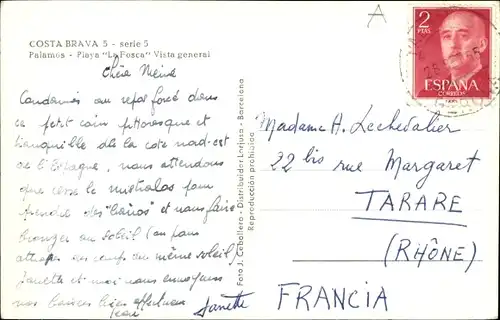 A
COSTA BRAVA 5 - serie 5
Palamós - Playa "La Fosca" Vista general
Condamnés au repos forcé dans
ce petit coin pittoresque et
tranquille de la côte nord-est
de l'Espagne, nous attendons
que cesse le mistral pour
prendre des "baños" et nous faire
bronzer au soleil (ou pans
du même soleil)
Janette et moi nous envoyons
nos baisers bien affectueux
Janette
Foto J. Caballero - Distribuidor Linjusa - Barcelona
Reproducción prohibida
2
PTAS
ESPAÑA
CORREOS
Madame A. Lechevalier
22 bis rue Margaret
TARARE
(RHÔNE)
FRANCIA